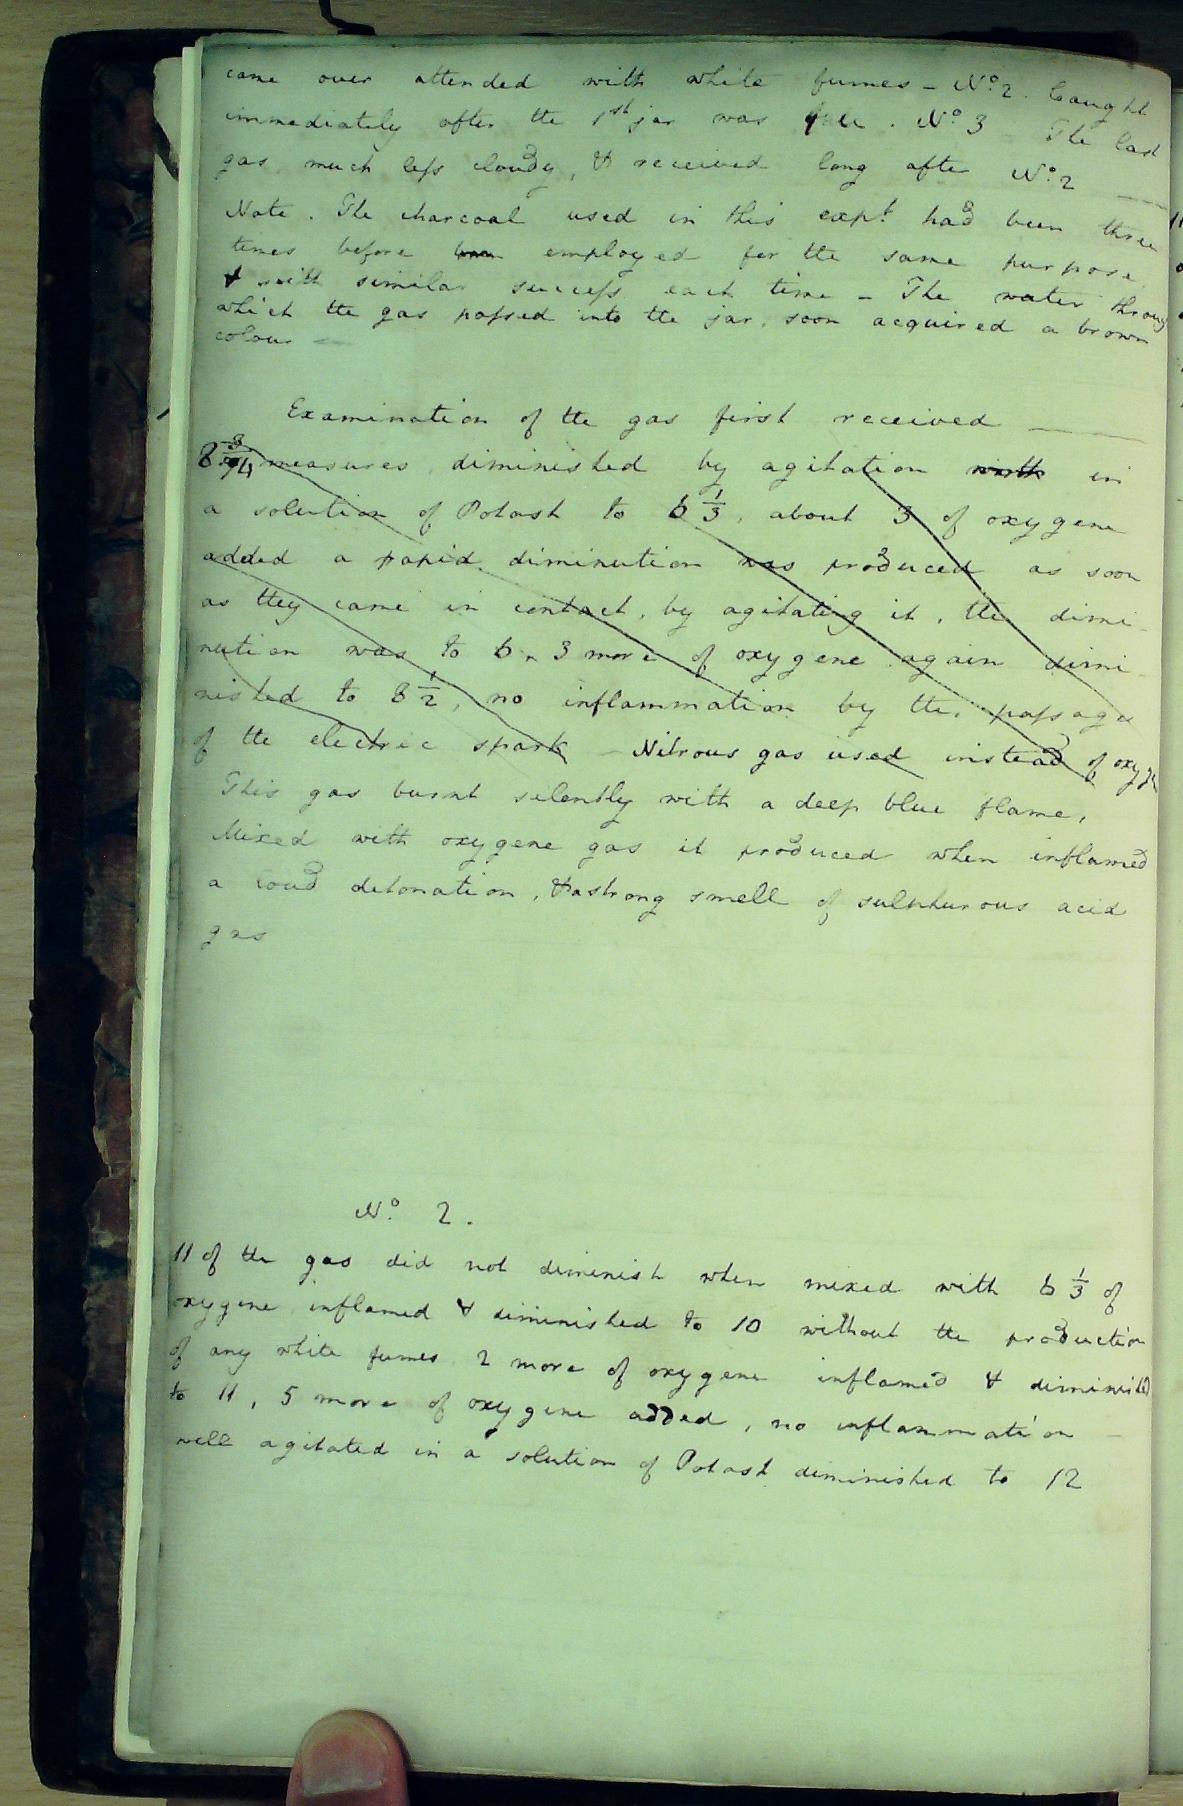 came over attended with white fumes - No. 2. Caught
immediately after the 1st jar was full. No 3 - The last
gas much less cloudy, & received long after No. 2
Note. The charcoal used in this expt. had been three
times before employed for the same purpose
& with similar success each time - The water throug
which the gas passed into the jar, soon acquired a brown
colour
Examination of the gas first received
8 3/4 measures diminished by agitation with in
a solution of Potash to 6 1/3, about 3 of oxygene
added a rapid diminution was produced as soon
as they came in contact, by agitating it, the dimi-
nution was to 6. 3 more of oxygene again dimi-
nished to 8 1/2, no inflammation by the passage
of the electric spark - Nitrous gas used instead of oxyg
This gas burnt silently with a deep blue flame,
Mixed with oxygene gas it produced when inflamed
a loud detonation, & a strong smell of sulphurous acid
gas
No. 2.
11 of the gas did not diminish when mixed with 6 1/3 of
oxygene inflamed & diminished to 10 without the production
of any white fumes 2 more of oxygene inflamed & diminished
to 11, 5 more of oxygene added, no inflammation -
well agitated in a solution of Potash diminished to 12